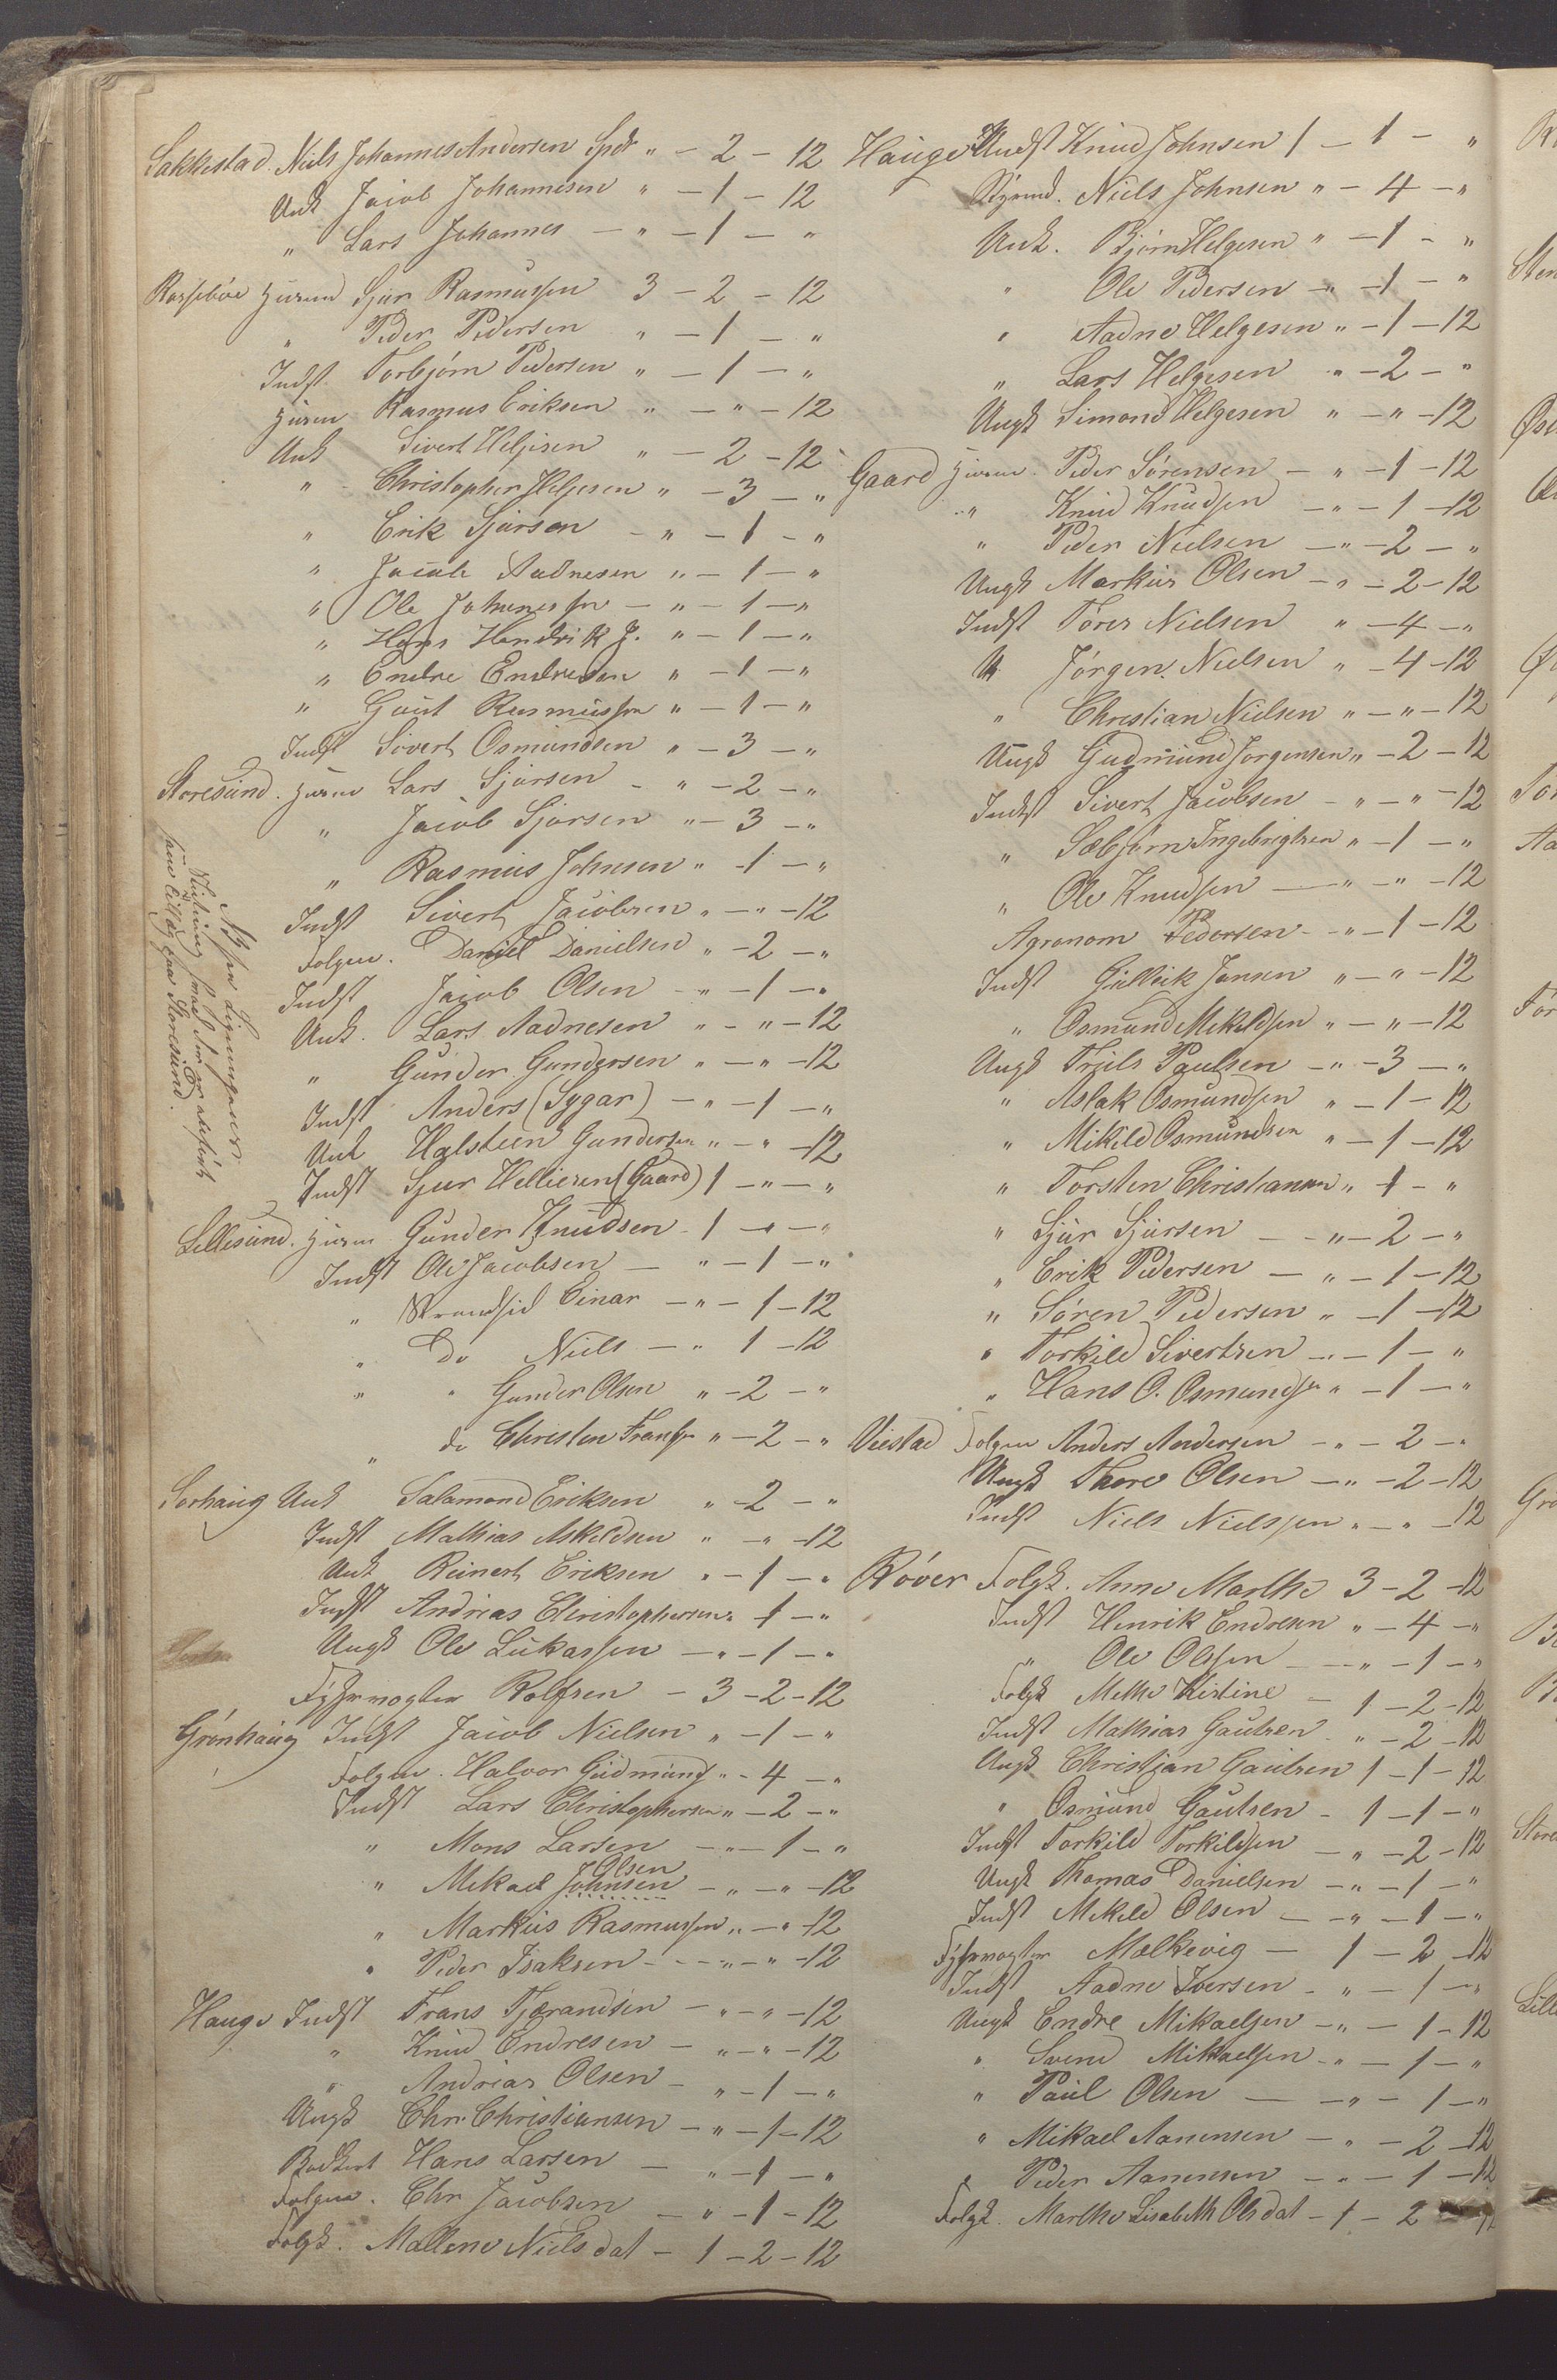 Sakkestad. Niels Johannes Andersen Spdr " - 2 - 12
Unk Jacob Johannesen " - 1 - 12
" Lars Johannes - " - 1 - "
Rossebøe Huusm Sjur Rasmussen 3 - 2 - 12
" Peder Pedersen " - 1 - "
Indst. Torbjørn Pedersen " - 1 - "
Huusm Rasmus Eriksen " - " - 12
Unk Sivert Helgesen " - 2 - 12
" Christopher Helgesen " - 3 - "
" Erik Sjursen - " - 1 - "
" Jacob Aadnesen " - 1 - "
" Ole Johannessen - " - 1 - "
" Hans Hendrik J. " - 1 - "
" Endre Endresen " - 1 - "
" Gaut Rasmussen " - 1 - "
Indst Sivert Osmundsen " - 3 - "
Storesund. Huusm Lars Sjursen - " - 2 - "
" Jacob Sjursen " - 3 - "
" Rasmus Johnsen " - 1 - "
Indst Sivert Jacobsen " - " - 12
Folgem. Daniel Danielsen " - 2 - "
Indst Jacob Olsen - " - 1 - "
Unk. Lars Aadnesen " - " - 12
" Gunder Gundersen " - " - 12
Indst Anders (Sygar) - " - 1 - "
Unk Halsteen Gundersen " - " - 12
Indst Sjur Helliesen (Gaard) 1 - " - "
Lillesund. Huusm Gunder Knudsen - 1 - " - "
Indst Ole Jacobsen - " - 1 - "
" Strandsid Einar - " - 1 - 12
" Do Niels - " 1 - 12
" " Gunder Olsen " - 2 - "
" do Christen Fransen " - 2 - "
Sørhaug Unk Salamond Eriksen " - 2 - "
Indst Mathias Askeldsen " - " - 12
Unk Reinert Eriksen " - 1 - "
Indst Andreas Christophersen " 1 - "
Ungk Ole Lukassen - " - 1 - "
Fyhrvogter Rolfsen - 3 - 2 - 12
Grønhaug Indst Jacob Nielsen " - 1 - "
Folgem. Halvor Gudmund " - 4 - "
Indst Lars Christophersen " - 2 - "
" Mons Larsen - " - 1 - "
Olsen
" Mikael Johnsen - " - " - 12
" Markus Rasmussen " - " - 12
" Peder Isaksen - " - " - 12
Hauge Indst Frans Tjerandsen - " - " - 12
" Knud Endresen - " - " - 12
" Andreas Olsen - " - 1 - "
Ungk Chr. Christiansen - " - 1 - 12
Hans Larsen - " - 1 - "
Folgem. Chr Jacobsen - " - 1 - 12
Folgk. Mallene Nielsdat - 1 - 2 - 12
storesund.
Hauge Indst Knud Johnsen 1 - 1 - "
Styrmd. Niels Johnsen " - 4 - "
Unk. Bjørn Helgesen " - 1 - "
" Ole Pedersen - " - 1 - "
" Aadne Helgesen " - 1 - 12
" Lars Helgesen " - 2 - "
Ungk Simond Helgesen " - " - 12
Gaard Huusm. Peder Sørensen - " - 1 - 12
" Knud Knudsen - " - 1 - 12
" Peder Nielsen - " - 2 - "
Ungk Markus Olsen - " - 2 - 12
Indst Tører Nielsen " - 4 - "
U. Jørgen Nielsen " - 4 - 12
" Christian Nielsen " - " - 12
Ungk Gudmund Jørgensen " - 2 - 12
Indst Sivert Jacobsen - " - " - 12
" Sæbjørn Ingebrigtsen " - 1 - "
" Ole Knudsen - " - " - 12
Agronom Pedersen - " - 1 - 12
Indst Gullick Jansen " - " - 12
" Osmund Mikeldsen " - " - 12
Ungk Truls Paulsen - " - 3 - "
" Aslak Osmundsen " - 1 - 12
" Mikeld Osmundsen " - 1 - 12
" Torsten Christiansen " 1 - "
" Sjur Sjursen - " - 2 - "
" Erik Pedersen - " - 1 - 12
" Søren Pedersen " - 1 - 12
" Torkild Sivertsen - " - 1 - "
" Hans O. Osmundsen " - 1 - "
Viestad Folgem Anders Andersen - " - 2 - "
Ungk Thore Olsen - " - 2 - 12
Indst Niels Nielssen " - " - 12
Røver Folgk. Anne Marthe 3 - 2 - 12
Indst Henrik Endresen " - 4 - "
" Ole Olssen - " - 1 - "
Folgk Methe Kistine - 1 - 2 - 12
Indst Mathias Gautsen " - 2 - 12
Ungk Christian Gautsen 1 - 1 - 12
" Osmund Gautsen - 1 - 1 - "
Indst Torkild Torkildsen - " - 2 - 12
Ungk Thomas Danielsen - " - 1 - "
Indst Mikeld Olsen - " - 1 - "
Fyhrvogter Mælkevig - 1 - 2 - 12
Indst Aadne Iversen - " - 1 - "
Ungk Endre Mikaelsen - " - 1 - 12
" Svend Mikkaelsen - " - 1 - "
" Paul Olsen - " - 1 - "
" Mikael Aanensen - " - 2 - 12
" Peder Aanensen - " - 1 - 12
Folgk. Marthe Lisabeth Olsdat - 1 - 2